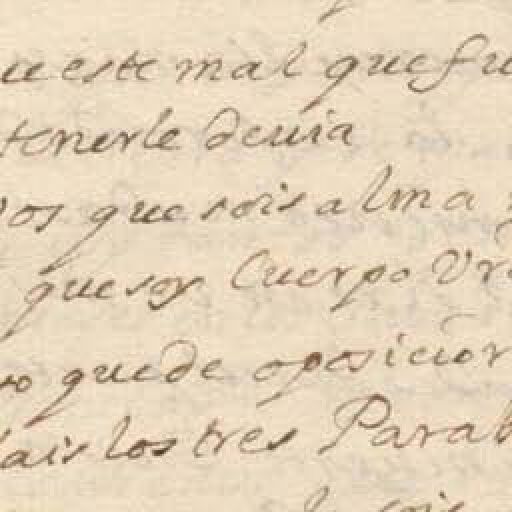 ueste mal que fu
tenerle deuia
Vos que sois alma
que soy Cuerpo Vro
quede oposicion
ais los tres Parab
sois